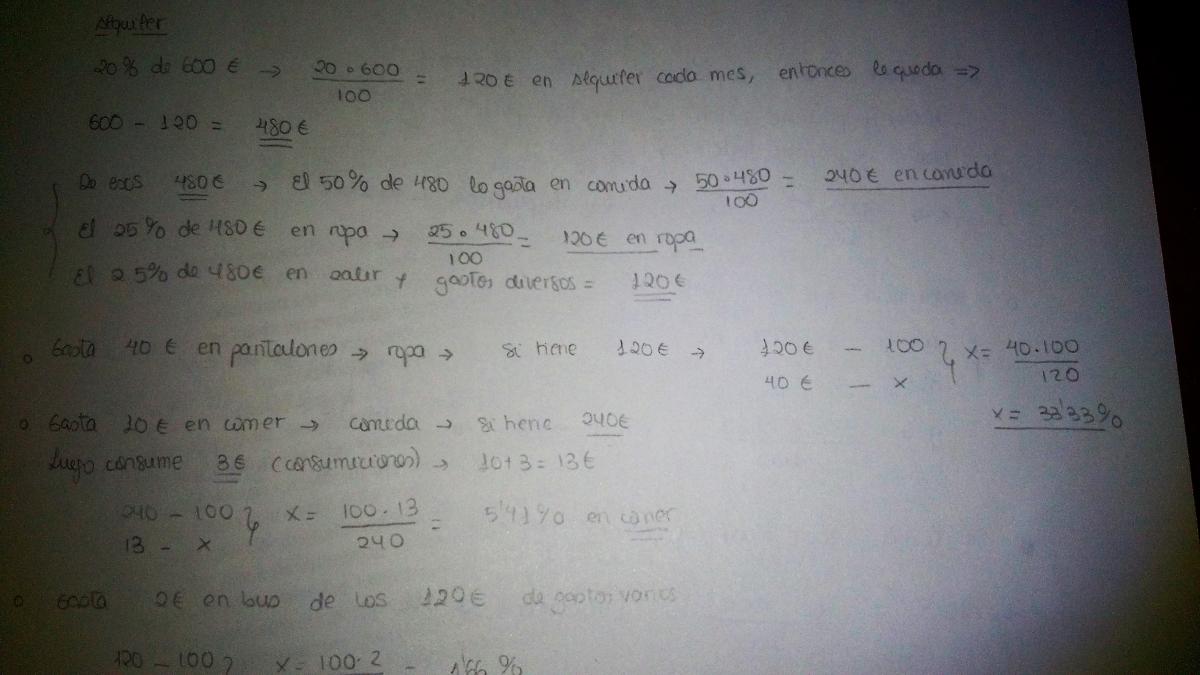 Alquiler
20% de 600 € → 20·600/100 = 120€ en Alquiler cada mes, entonces le queda =>
600 - 120 = 480€
De esos 480€ → El 50% de 480 lo gasta en comida → 50·480/100 = 240€ en comida
El 25% de 480€ en ropa → 25·480/100 = 120€ en ropa
El 25% de 480€ en salir y gastos diversos = 120€
Gasta 40 € en pantalones → ropa → si tiene 120€ → 120€ - 100 } x= 40·100/120
40€ - x
x= 33'33%
Gasta 10€ en comer → comida → si tiene 240€
Luego consume 3€ (consumiciones) → 10+3=13€
240 - 100 } x= 100·13/240 = 5'41% en comer
13 - x
Gasta 2€ en bus de los 120€ de gastos varios
120 - 100 } x= 100·2 = 1'66 %